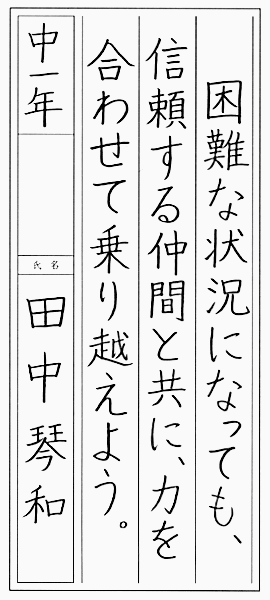 困難な状況になっても、
信頼する仲間と共に、力を
合わせて乗り越えよう。
中一年
氏名
田中琴和